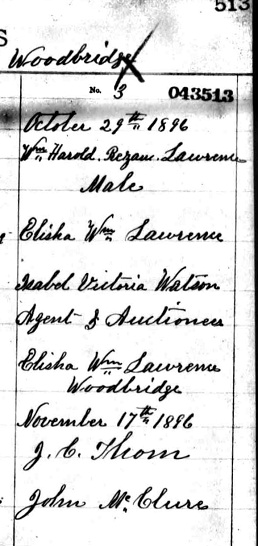 513
S
Woodbridge
No. 3 043513
October 29th 1896
Wm Harold Rezane Lawrence
Male
Elisha Wm Lawrence
Isabel Victoria Watson
Agent & Auctioneer
Elisha Wm Lawrence
Woodbridge
November 17th 1896
J. C. Thom
John McClure